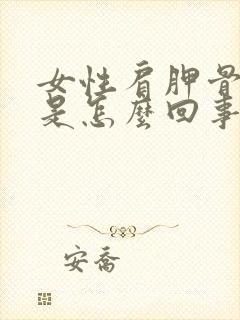 女性肩胛骨
是怎麼回事
安喬